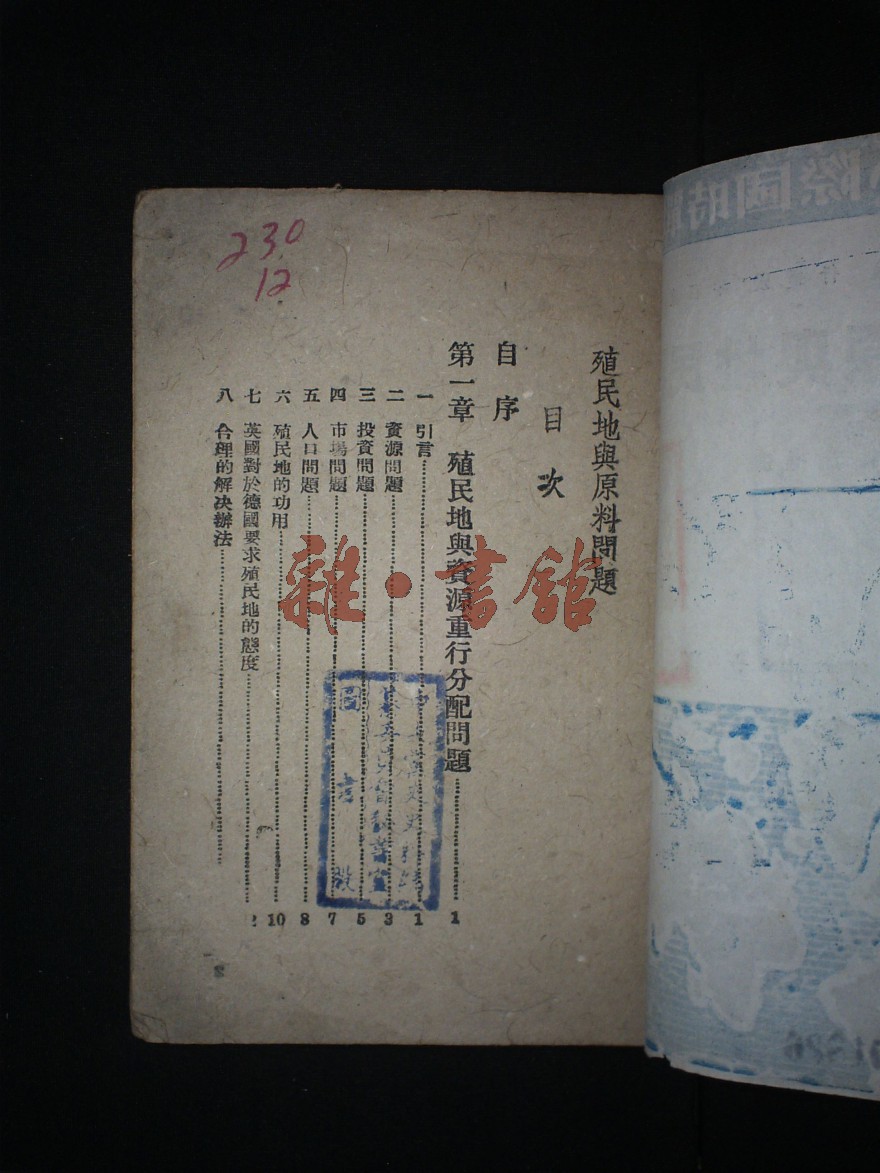 殖民地與原料問題
目次
自序
第一章 殖民地與資源重行分配問題……1
一 引言……1
二 資源問題……3
三 投資問題……5
四 市場問題……7
五 人口問題……8
六 殖民地的功用……10
七 英國對於德國要求殖民地的態度
八 合理的解决辦法……
230
12
雜·書館
圖書股
際國時